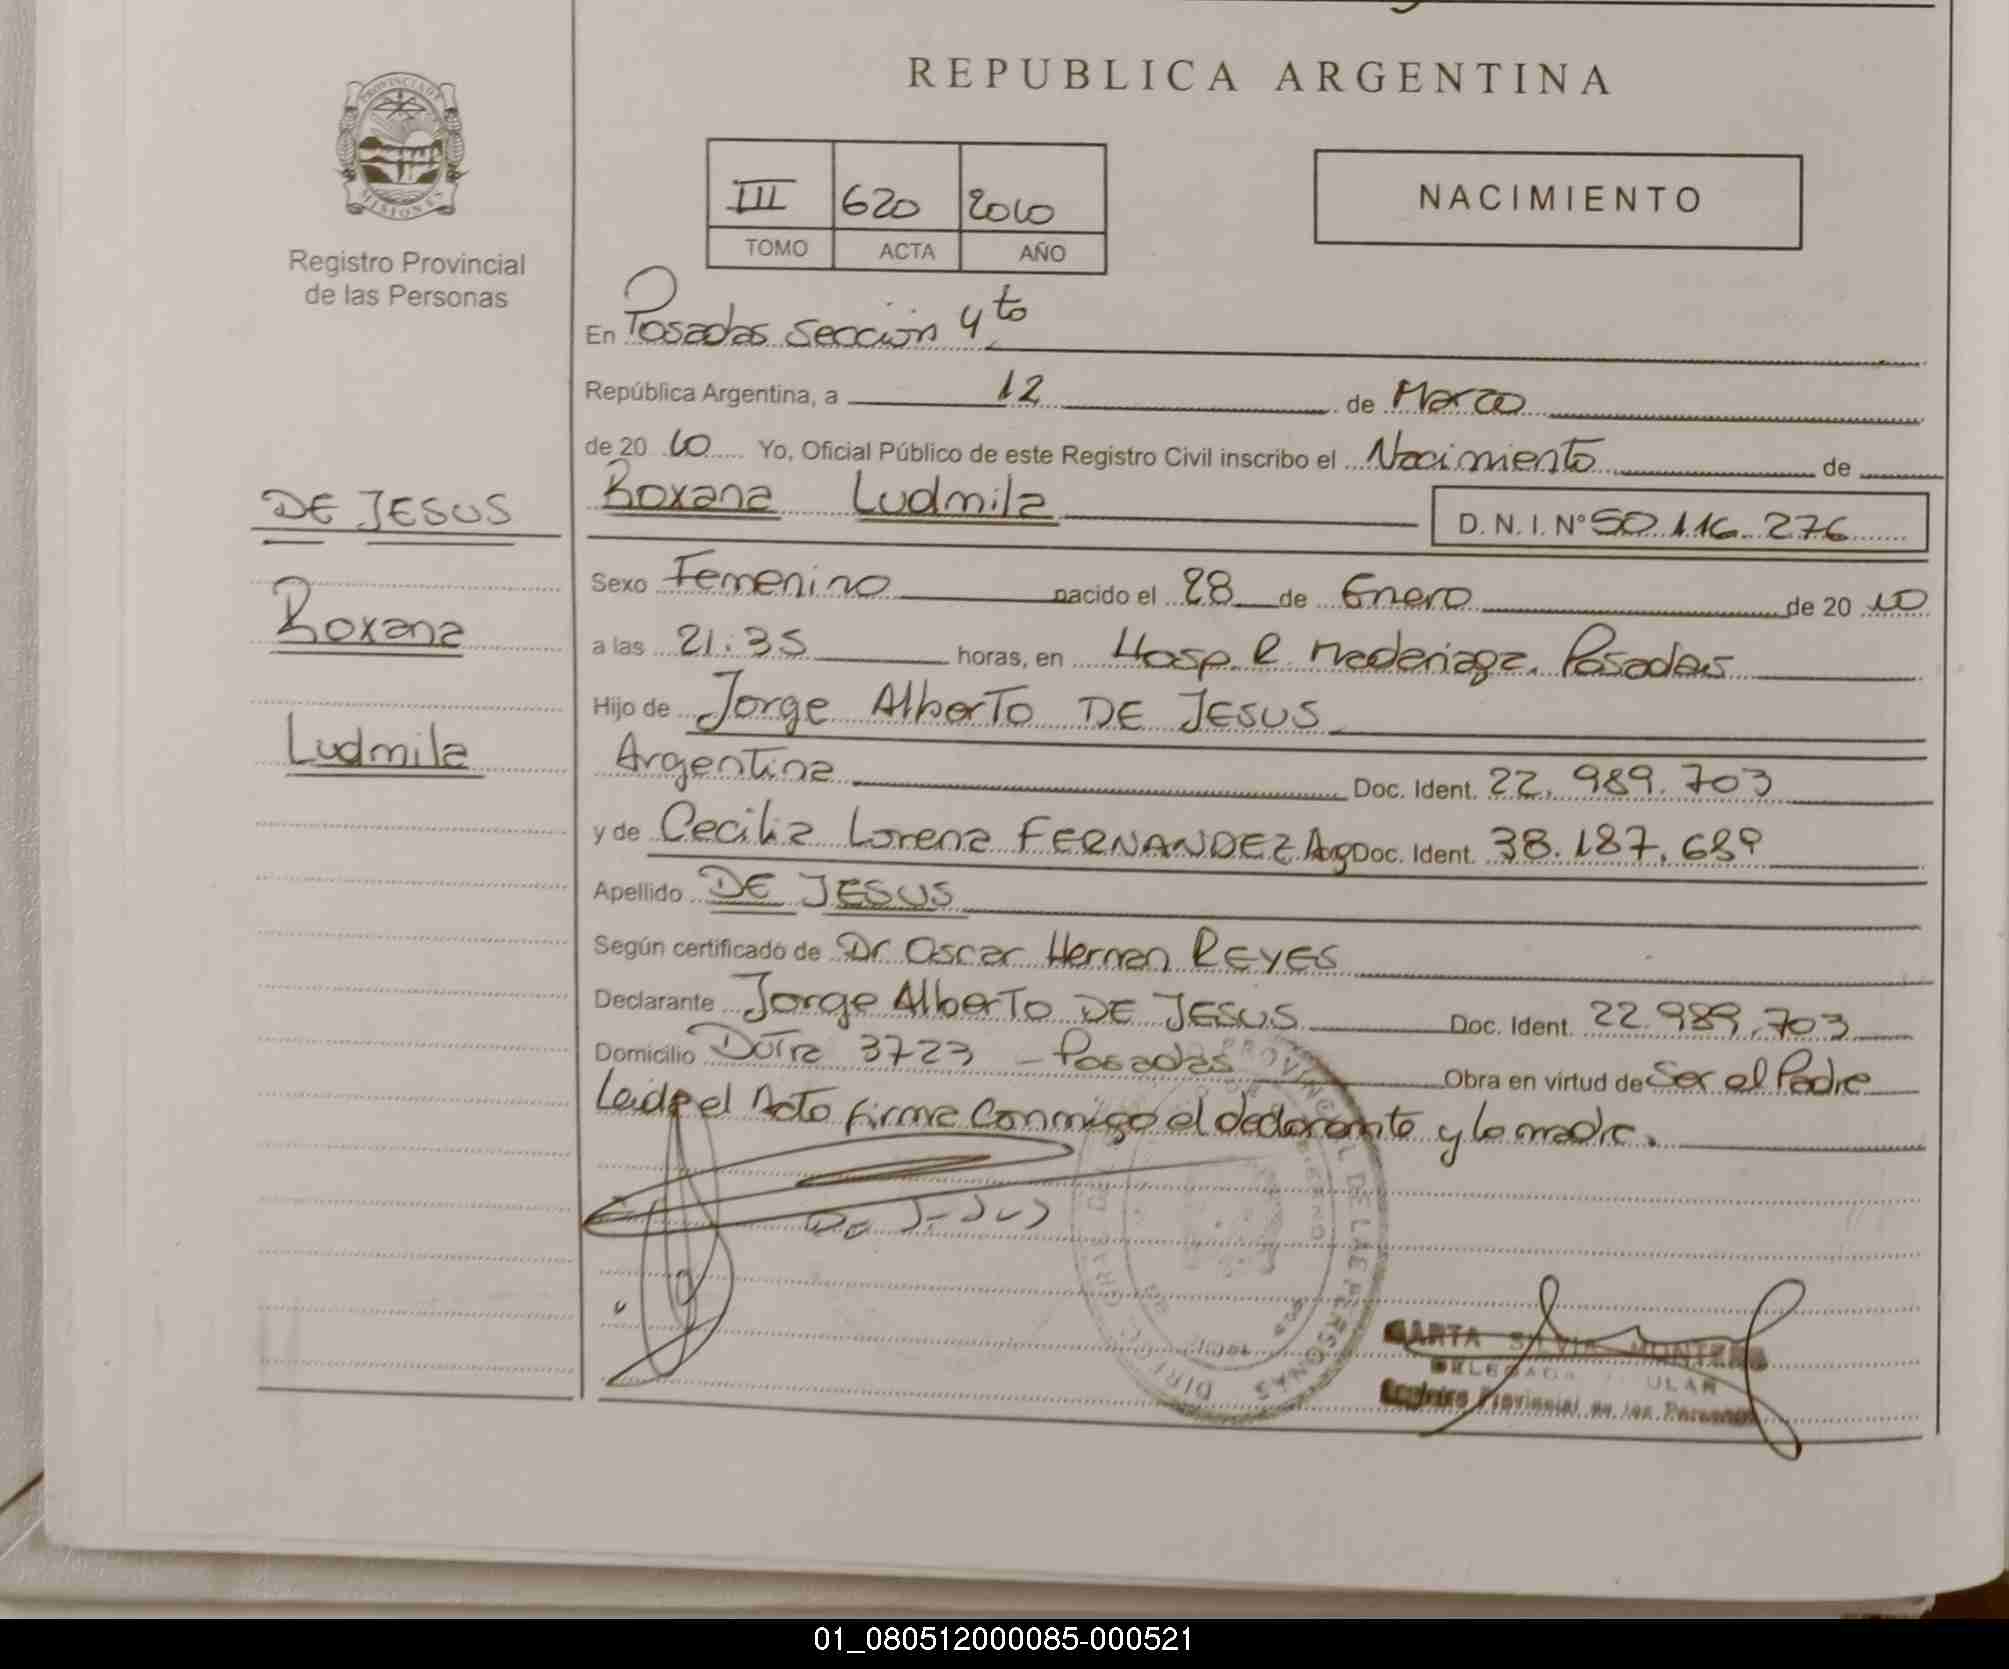 REPUBLICA ARGENTINA
PROVINCIA DE
MISIONES
Registro Provincial
de las Personas
III 620 2010
TOMO ACTA AÑO
NACIMIENTO
En Posadas Sección 4to
República Argentina, a 12 de Marzo
de 20 10 Yo, Oficial Público de este Registro Civil inscribo el Nacimiento de
DE JESUS
Roxana Ludmila D. N. I. N° 50.116.276
Sexo Femenino nacido el 28 de Enero de 20 10
Roxana
a las 21:35 horas, en Hosp. R. Madariaga. Posadas
Hijo de Jorge Alberto DE JESUS
Ludmila
Argentina Doc. Ident. 22.989.703
y de Cecilia Lorena FERNANDEZ Arg Doc. Ident. 38.187.689
Apellido DE JESUS
Según certificado de Dr Oscar Hernan REYES
Declarante Jorge Alberto DE JESUS Doc. Ident. 22.989.703
Domicilio 3723 - Posadas Obra en virtud de Ser el Padre
Leida el Acta firma conmigo el declarante y la madre.
De Jesus
PROVINCIAL DE LAS PERSONAS
MARTA SILVIA
Registro Provincial de las Personas
01_080512000085-000521